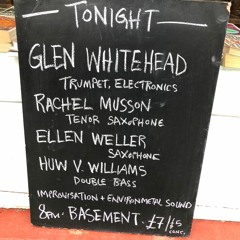 — TONIGHT —
GLEN WHITEHEAD
TRUMPET, ELECTRONICS
RACHEL MUSSON
TENOR SAXOPHONE
ELLEN WELLER
SAXOPHONE
HUW V. WILLIAMS
DOUBLE BASS
IMPROVISATION + ENVIRONMETAL SOUND
8PM. BASEMENT. £7/£5
CONC.